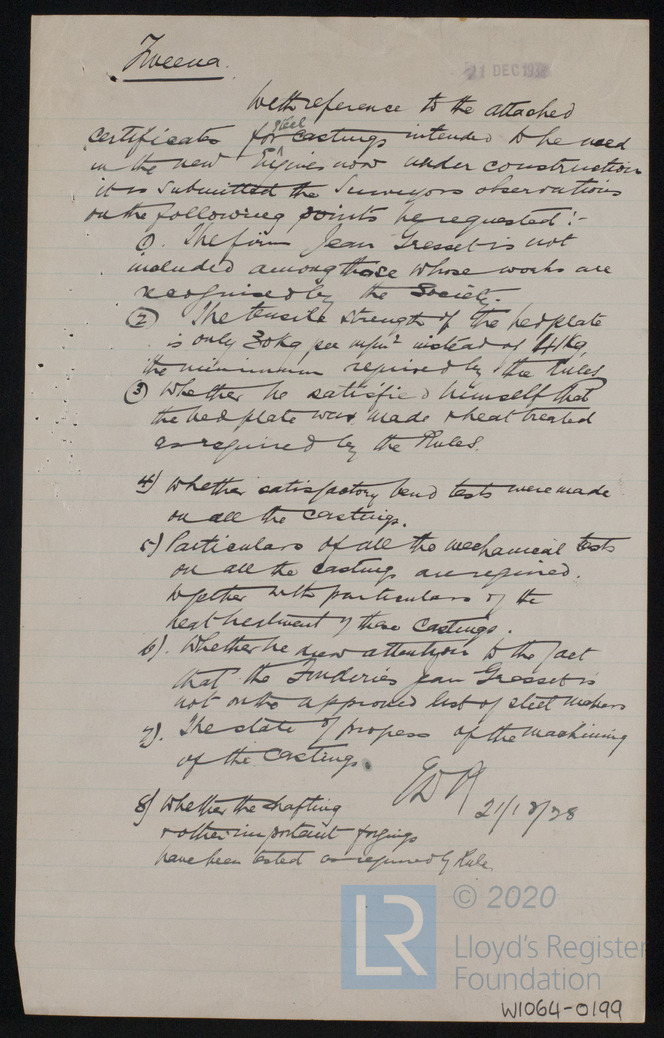 21 DEC 19
With reference to the attached
certificates for steel castings intended to be used
in the new Engines now under construction
it is submitted the Surveyors observations
on the following points be requested :-
1). The firm Jean Gresset is not
included among those whose works are
recognised by the Society.
(2) The tensile strength of the bedplate
is only 30kg per m/m² instead of 41 Kg
the minimum required by the Rules
(3) Whether he satisfied himself that
the bed plate was made & heat treated
as required by the Rules.
4) Whether satisfactory bend tests were made
on all the castings.
5) Particulars of all the mechanical tests
on all the castings are required.
together with particulars of the
heat treatment of these castings.
6). Whether he drew attention to the fact
that the Fonderies Jean Gresset is
not on the approved list of steel makers
7). The state of progress of the machining
of the castings.
21/12/28
8) Whether the shafting
& other important forgings
have been tested as required by Rule.
© 2020
LR
Lloyd's Register
Foundation
W1064-0199